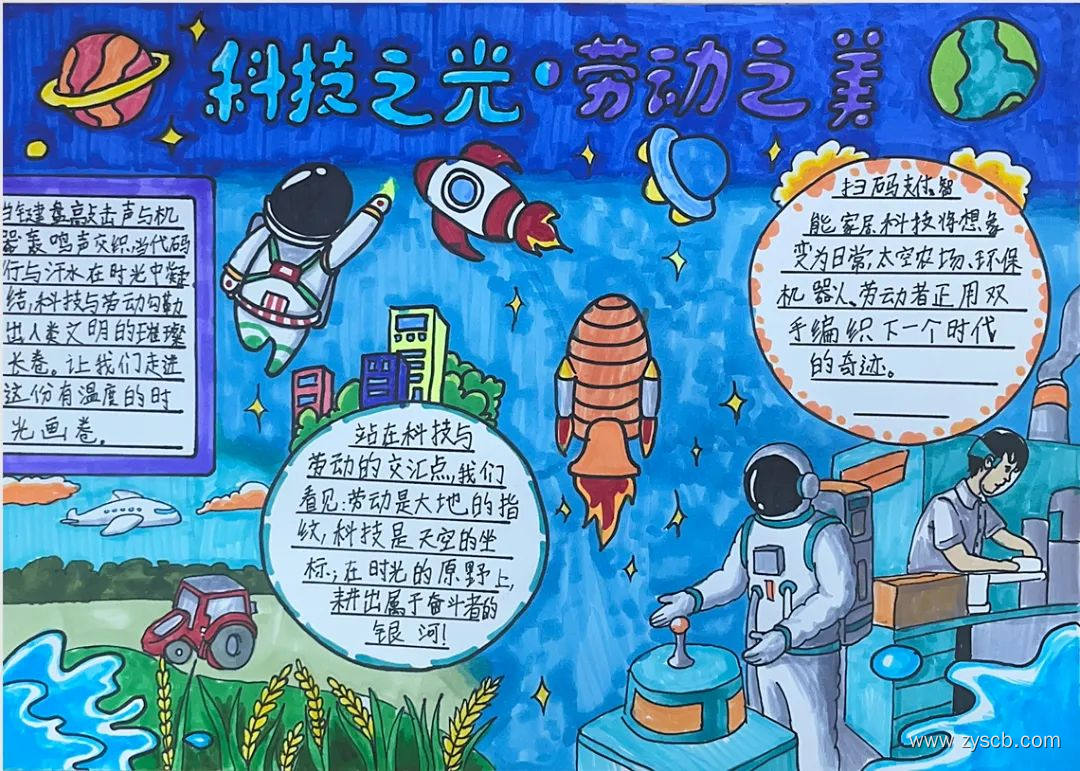 科技之光·劳动之美
当键盘敲击声与机
器轰鸣声交织,当代码
行与汗水在时光中凝
结,科技与劳动勾勒
出人类文明的璀璨
长卷。让我们走进
这份有温度的时
光画卷。
站在科技与
劳动的交汇点,我们
看见:劳动是大地的指
纹,科技是天空的坐
标;在时光的原野上,
耕出属于奋斗者的
银河!
扫码支付、智
能家居科技将想象
变为日常,太空农场、环保
机器人、劳动者正用双
手编织下一个时代
的奇迹。
www.zyscb.com